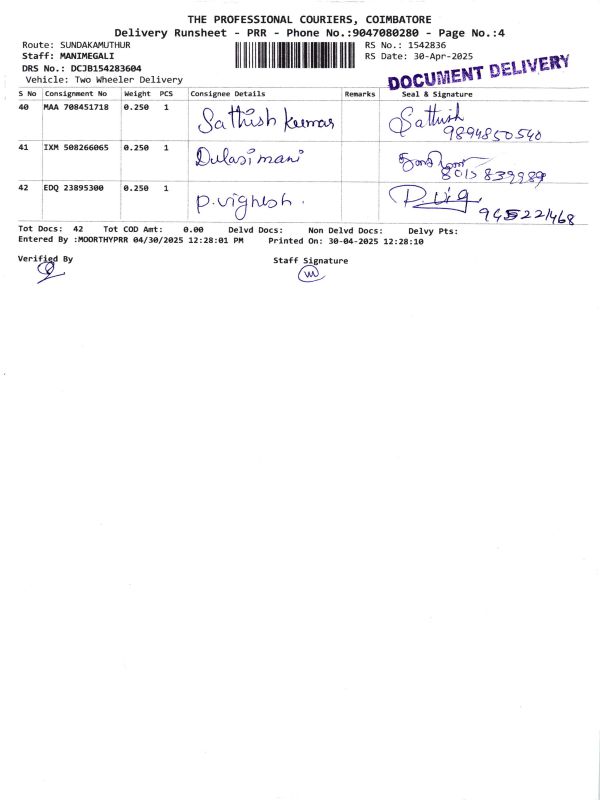 THE PROFESSIONAL COURIERS, COIMBATORE
Delivery Runsheet - PRR - Phone No.:9047080280 - Page No.:4
Route: SUNDAKAMUTHUR RS No.: 1542836
Staff: MANIMEGALI RS Date: 30-Apr-2025
DRS No.: DCJB154283604
Vehicle: Two Wheeler Delivery
DOCUMENT DELIVERY
S No Consignment No Weight PCS Consignee Details Remarks Seal & Signature
40 MAA 708451718 0.250 1 Sathish kumar Sathish
9894850540
41 IXM 508266065 0.250 1 Dulasimani
8015839989
42 EDQ 23895300 0.250 1 P. vighesh. P. vig
Tot Docs: 42 Tot COD Amt: 0.00 Delvd Docs: Non Delvd Docs: Delvy Pts:
Entered By :MOORTHYPRR 04/30/2025 12:28:01 PM Printed On: 30-04-2025 12:28:10
Verified By Staff Signature